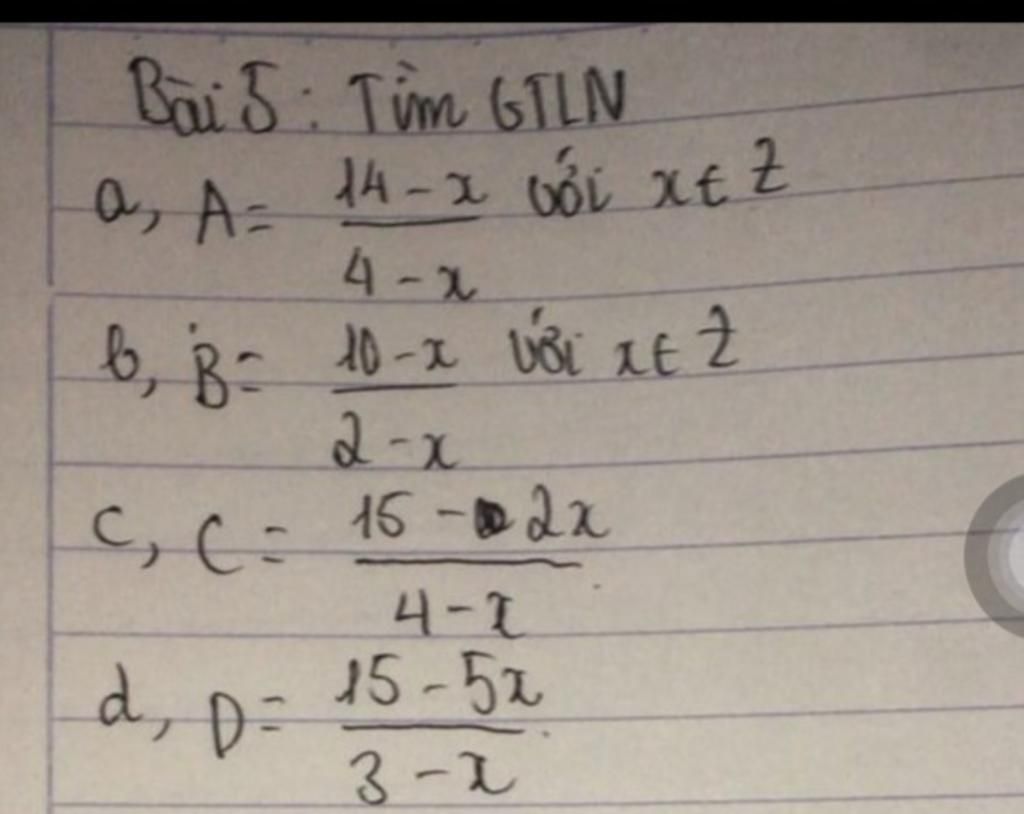 Bài 5: Tìm GTLN
a, A = 14 - x / 4 - x với x ∈ Z
b, B = 10 - x / 2 - x với x ∈ Z
c, C = 15 - 2x / 4 - x
d, D = 15 - 5x / 3 - x